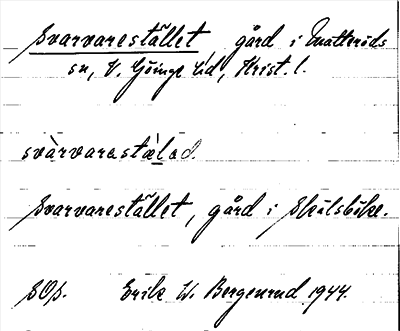 Svarvarestället, gård i Gnatteröds
sn, V. Göinge hd, Krist. l.
svàrvarestæ̀led.
Svarvarestället, gård i Skålsböke.
SOS. Erik W. Bergenrud 1944.